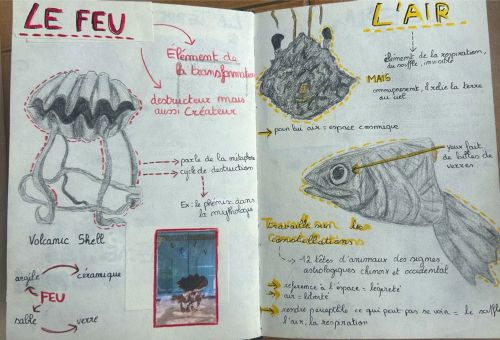 LE FEU
Elément de
la transformation
destructeur mais
aussi Créateur
parle de la
cycle de destruction
Ex: le phénix dans
la mythologie
Volcanic Shell
argile
céramique
FEU
sable
verre
L'AIR
élément de la respiration,
du souffle, invisible
MAIS
omniprésent, il relie la terre
au ciel
pour lui air = espace cosmique
yeux fait
de billes de
verres
Travaille sur les
constellations
-12 têtes d'animaux des signes
astrologiques chinois et occidental
reference à l'espace = légèreté
air = liberté
rendre perceptible ce qui peut pas se voir = le souffle
l'air, la respiration